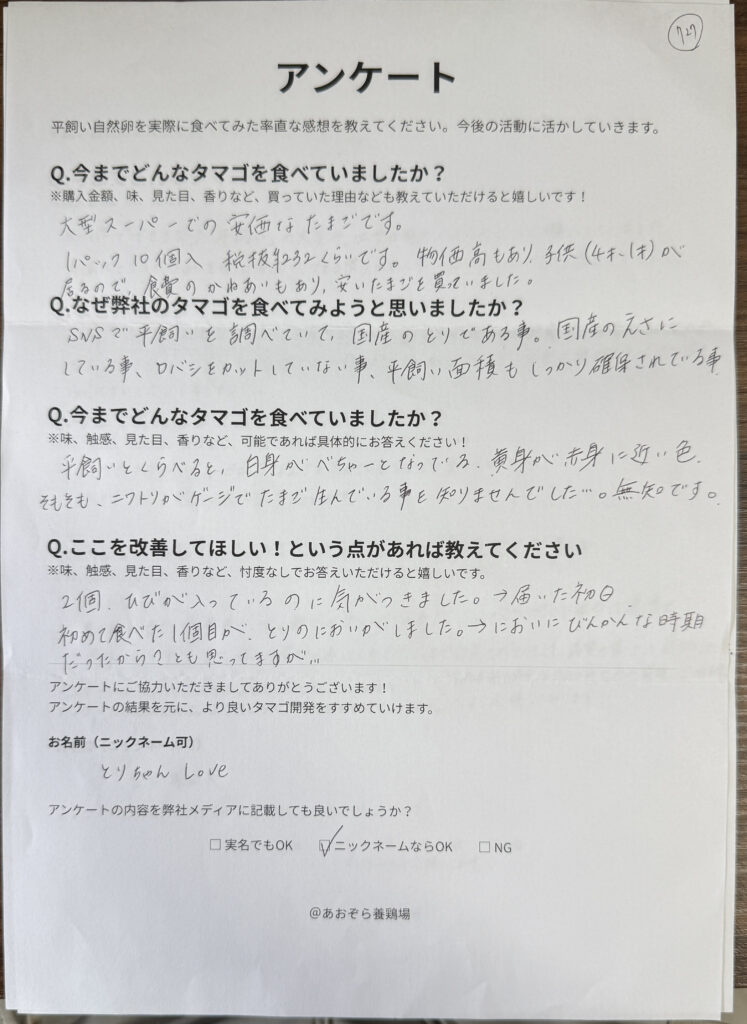 727
アンケート
平飼い自然卵を実際に食べてみた率直な感想を教えてください。今後の活動に活かしていきます。
Q.今までどんなタマゴを食べていましたか？
※購入金額、味、見た目、香りなど、買っていた理由なども教えていただけると嬉しいです！
大型スーパーでの安価なたまごです。
1パック10個入 税抜¥232くらいです。物価高もあり、子供(4才、1才)が
居るので、食費のかねあいもあり、安いたまごを買っていました。
Q.なぜ弊社のタマゴを食べてみようと思いましたか？
SNSで平飼いを調べていて、国産のとりである事。国産のえさに
している事、口バシをカットしていない事、平飼い面積もしっかり確保されている事
Q.今までどんなタマゴを食べていましたか？
※味、触感、見た目、香りなど、可能であれば具体的にお答えください！
平飼いとくらべると、白身がべちゃーとなってる、黄身が赤身に近い色、
そもそも、ニワトリがゲージでたまご生んでいる事を知りませんでした…。無知です。
Q.ここを改善してほしい！という点があれば教えてください
※味、触感、見た目、香りなど、忖度なしでお答えいただけると嬉しいです。
2個、ひびが入っているのに気がつきました。→届いた初日
初めて食べた1個目が、とりのにおいがしました。→においにびんかんな時期
だったから？とも思ってますが…
アンケートにご協力いただきましてありがとうございます！
アンケートの結果を元に、より良いタマゴ開発をすすめていけます。
お名前（ニックネーム可）
とりちゃん Love
アンケートの内容を弊社メディアに記載しても良いでしょうか？
□実名でもOK ☑ニックネームならOK □NG
＠あおぞら養鶏場